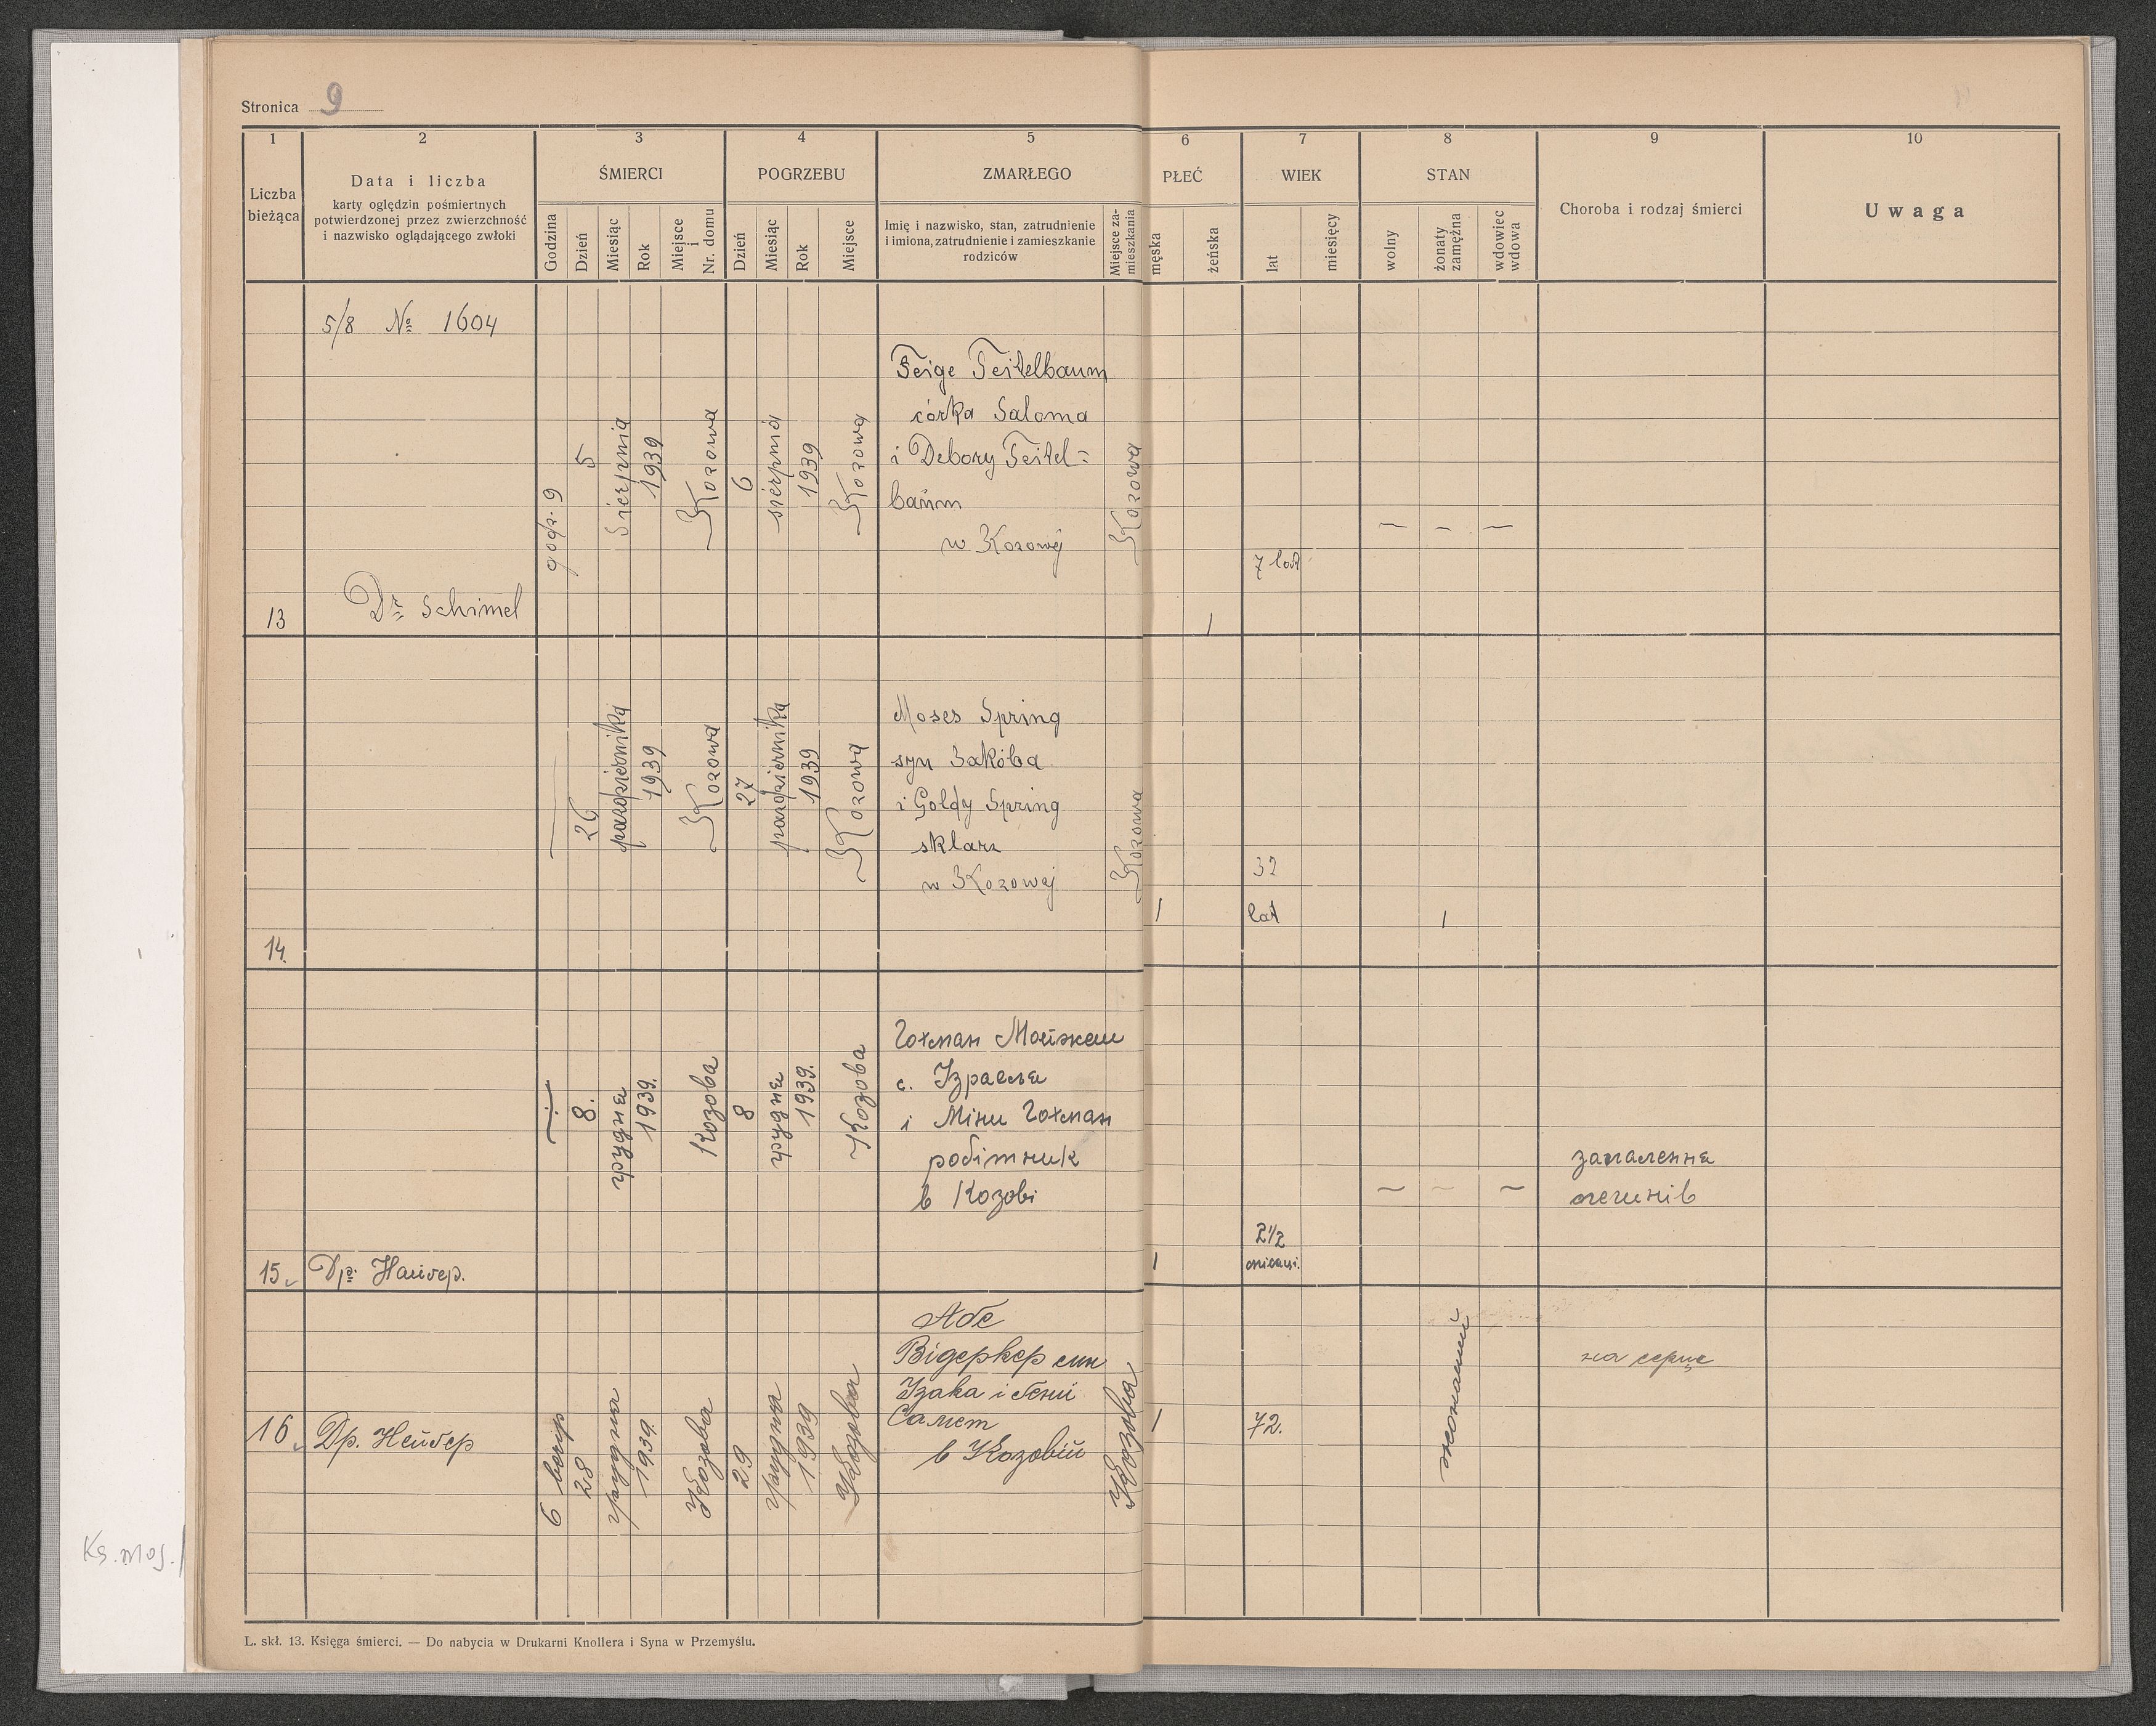 Stronica 9
1 2 3 4 5 6 7 8 9 10
Liczba bieżąca
Data i liczba
karty oględzin pośmiertnych
potwierdzonej przez zwierzchność
i nazwisko oglądającego zwłoki
ŚMIERCI
Godzina
Dzień
Miesiąc
Rok
Miejsce i Nr. domu
POGRZEBU
Dzień
Miesiąc
Rok
Miejsce
ZMARŁEGO
Imię i nazwisko, stan, zatrudnienie
i imiona, zatrudnienie i zamieszkanie
rodziców
Miejsce za-
mieszkania
PŁEĆ
męska
żeńska
WIEK
lat
miesięcy
STAN
wolny
żonaty
zamężna
wdowiec
wdowa
Choroba i rodzaj śmierci
Uwaga
5/8 № 1604
Dr Schimel
13
godz. 9
5
Sierpnia
1939
Kozowa
6
sierpnia
1939
Kozowa
Feige Teitelbaum
córka Saloma
i Debory Teitel=
baum
w Kozowej
Kozowa
1
7 lat
— — —
14.
26
października
1939
Kozowa
27
października
1939
Kozowa
Moses Spring
syn Jakóba
i Goldy Spring
sklarz
w Kozowej
Kozowa
1
32
lat
1
15.
Др. Найвер.
8.
грудня
1939.
Козова
8
грудня
1939.
Козова
Гольман Мойжеш
с. Ізраеля
і Міни Гольман
робітник
в Козобі
1
2 1/2
місяці.
— — —
запалення
легенів
16.
Др. Нейвер
6 вечір
28
грудня
1939
Козова
29
грудня
1939
Козова
Абе
Відеркер син
Ізака і Бені
Самет
в Козовій
Козова
1
72.
жонатий
на серце
Ks. moj.
L. skł. 13. Księga śmierci. — Do nabycia w Drukarni Knollera i Syna w Przemyślu.